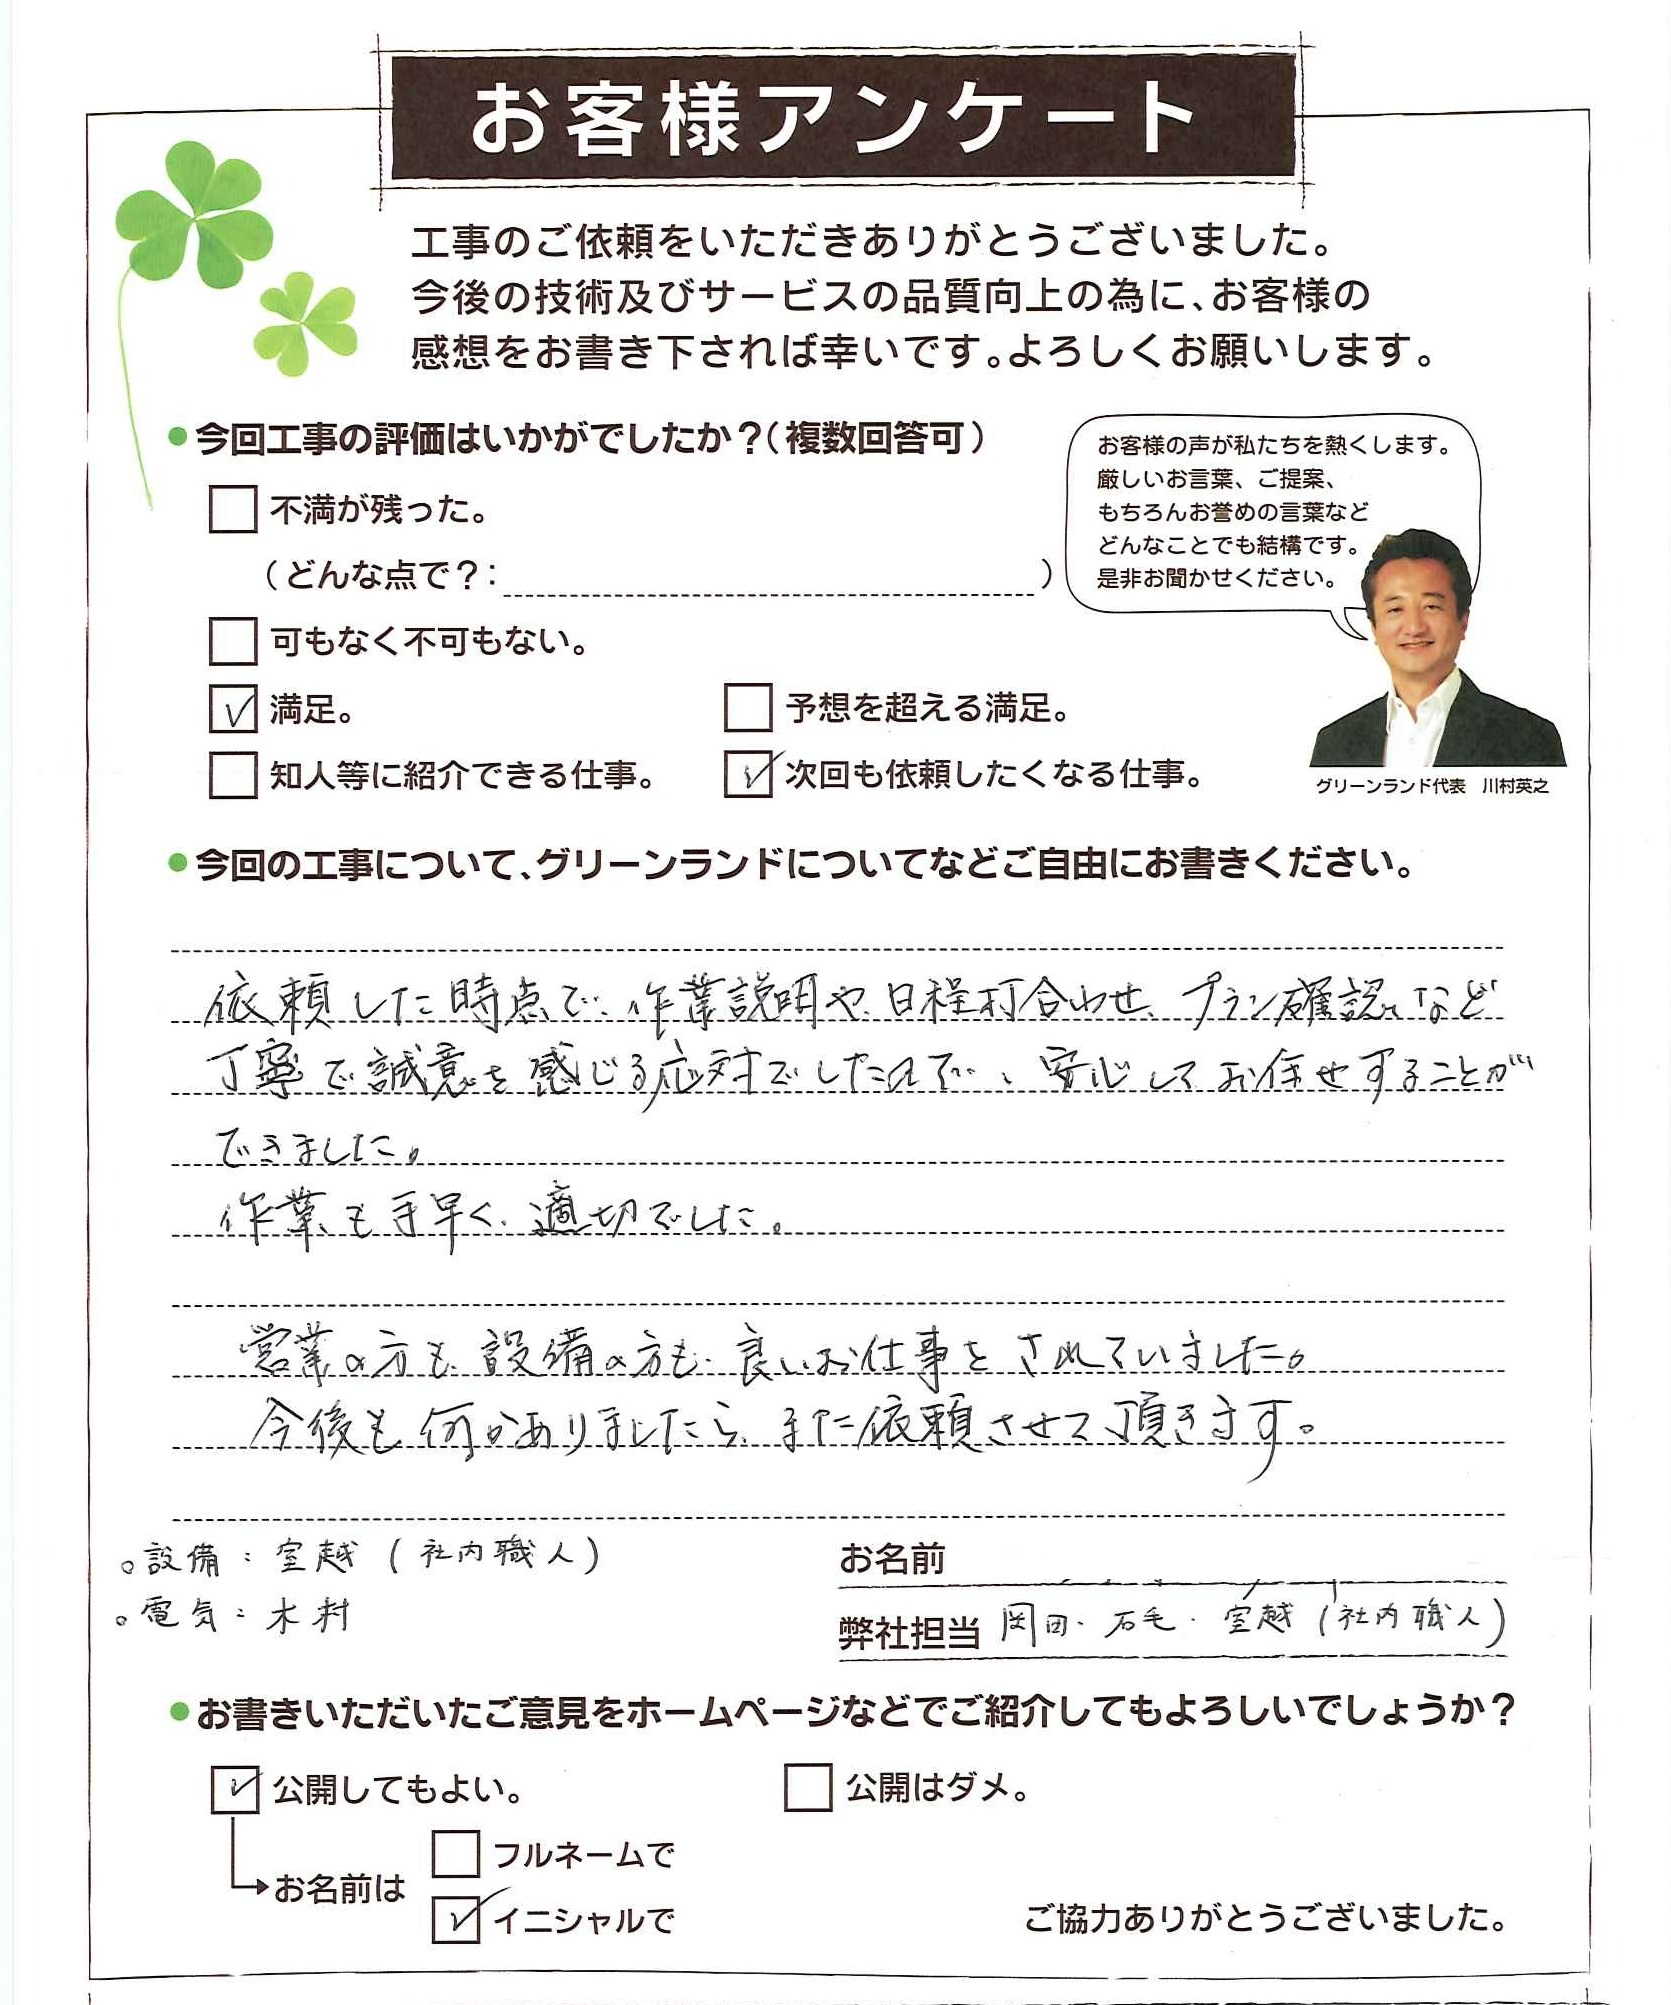 お客様アンケート
工事のご依頼をいただきありがとうございました。
今後の技術及びサービスの品質向上の為に、お客様の
感想をお書き下されば幸いです。よろしくお願いします。
●今回工事の評価はいかがでしたか？（複数回答可）
不満が残った。
（どんな点で？：　　　　）
可もなく不可もない。
✓ 満足。
予想を超える満足。
知人等に紹介できる仕事。
✓ 次回も依頼したくなる仕事。
お客様の声が私たちを熱くします。
厳しいお言葉、ご提案、
もちろんお誉めの言葉など
どんなことでも結構です。
是非お聞かせください。
グリーンランド代表　川村英之
●今回の工事について、グリーンランドについてなどご自由にお書きください。
依頼した時点で、作業説明や、日程打合わせ、プラン確認など
丁寧で誠意を感じる応対でしたので、安心してお任せすることが
できました。
作業も手早く、適切でした。
営業の方も、設備の方も、良いお仕事をされていました。
今後も何かありましたら、また依頼させて頂きます。
。設備：室越（社内職人）
。電気：木村
お名前
弊社担当 岡田・石毛・室越（社内職人）
●お書きいただいたご意見をホームページなどでご紹介してもよろしいでしょうか？
✓ 公開してもよい。
公開はダメ。
お名前は
フルネームで
✓ イニシャルで
ご協力ありがとうございました。